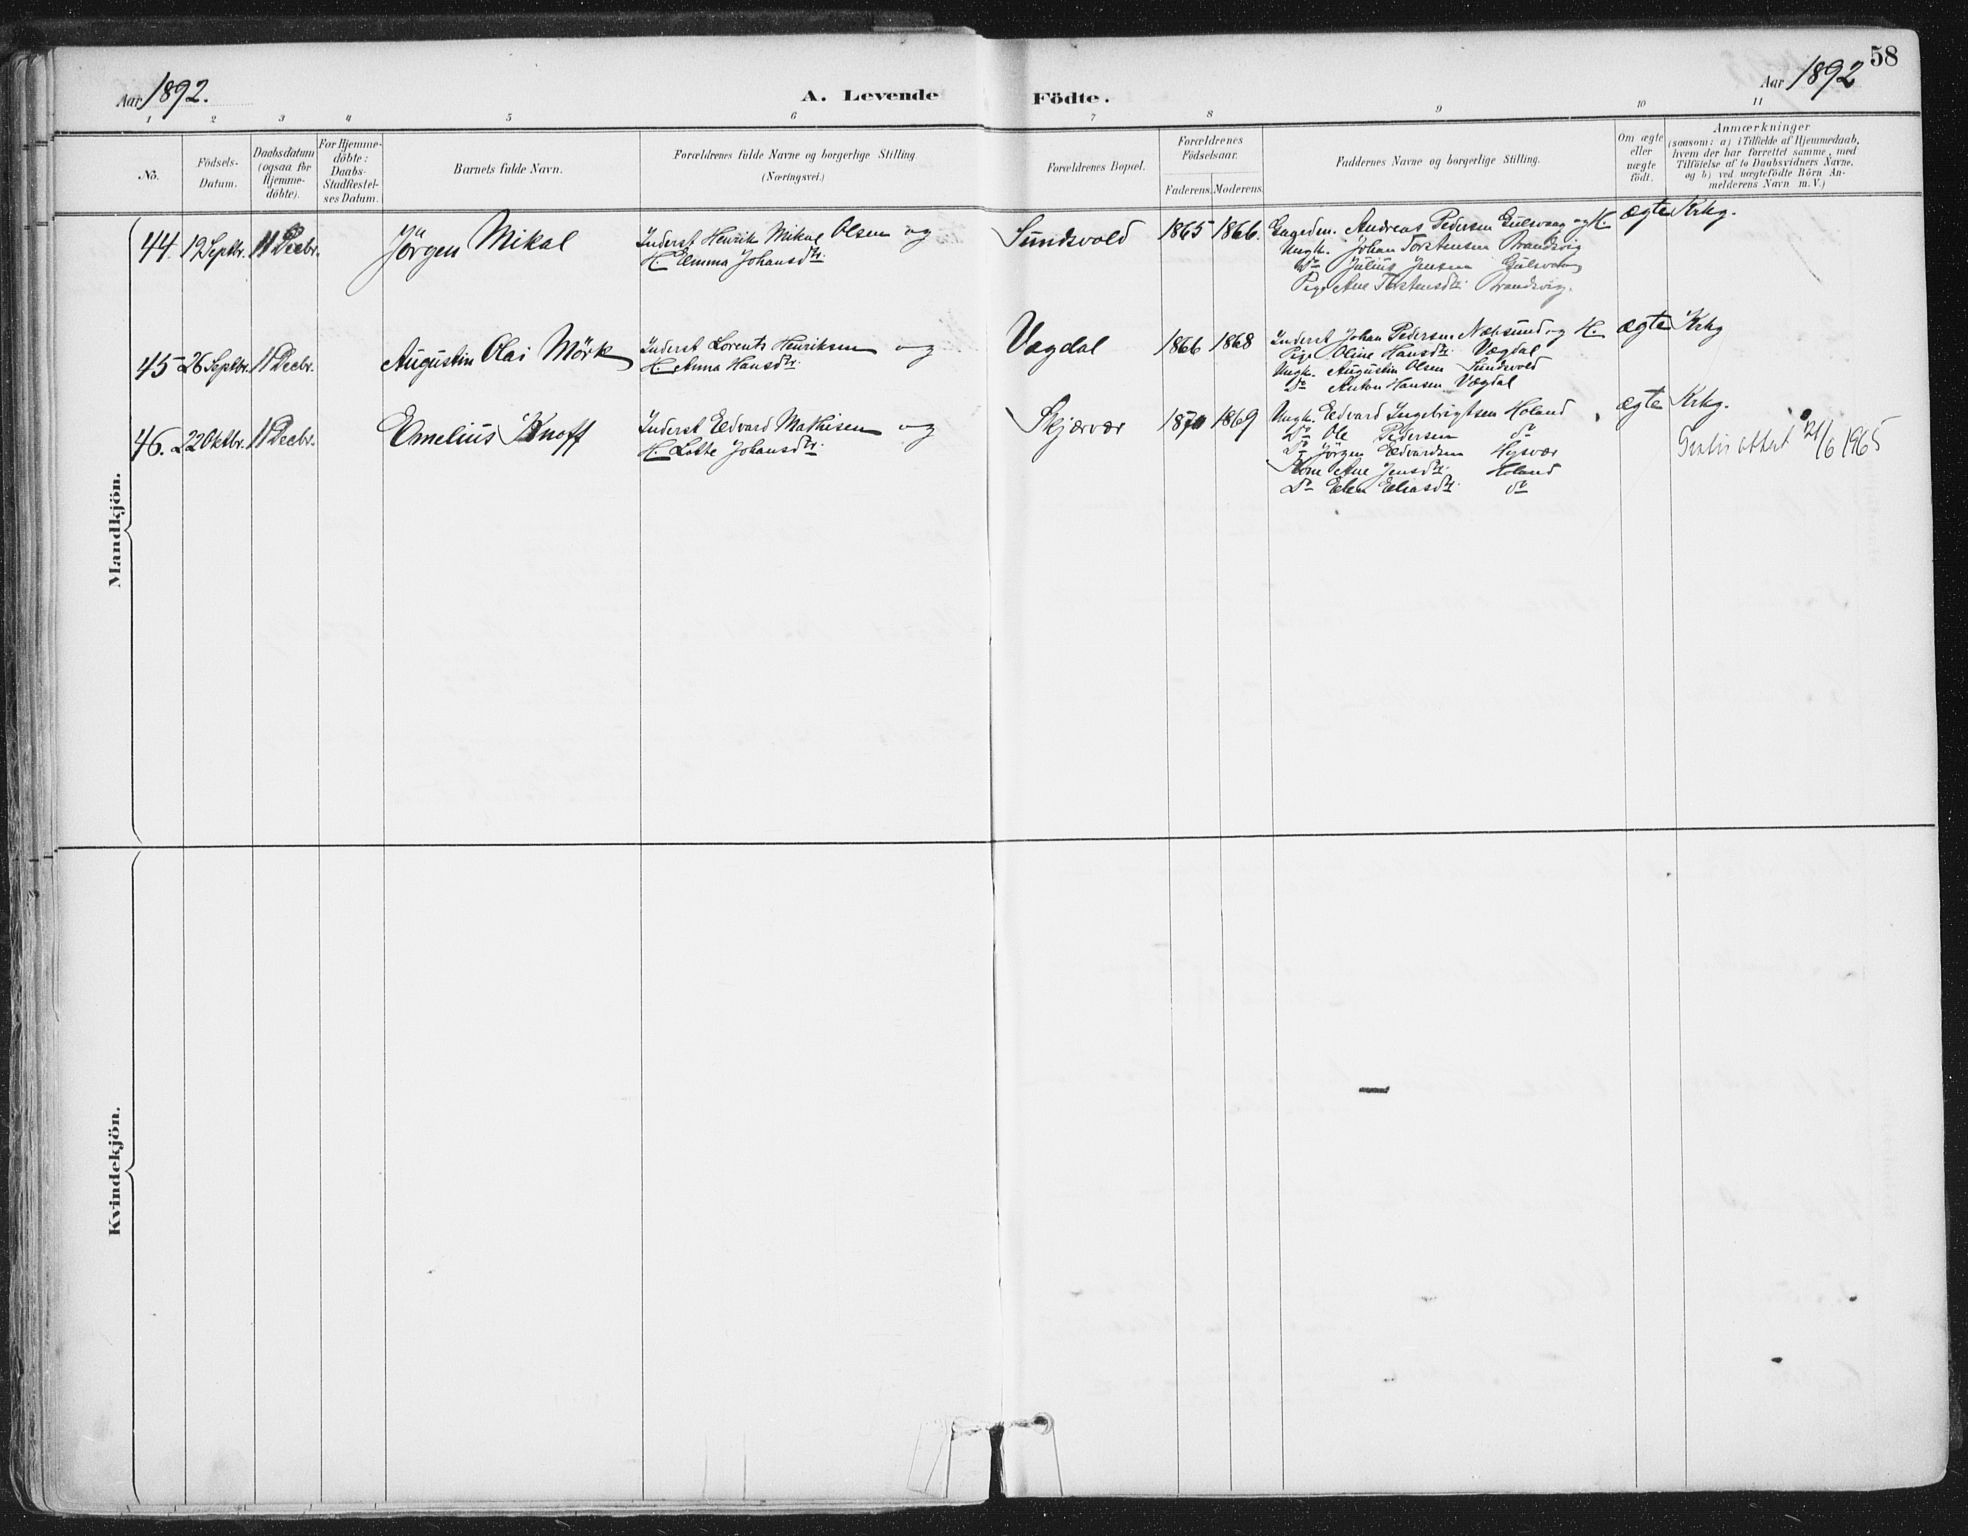 58
Aar 1892.
A. Levende Födte.
Aar 1892
1 2 3 4 5 6 7 8 9 10 11
No.
Födsels-
Datum.
Daabsdatum
(ogsaa for
Hjemme-
döbte).
For Hjemme-
döbte:
Daabs-
Stadfæstel-
ses Datum.
Barnets fulde Navn.
Forældrenes fulde Navne og borgerlige Stilling
(Næringsvei.)
Forældrenes Bopæl.
Forældrenes
Födselsaar.
Faderens. Moderens.
Faddernes Navne og borgerlige Stilling.
Om ægte
eller
uægte
födt.
Anmærkninger
(saasom: a) i Tilfælde af Hjemmedaab,
hvem der har forrettet samme, med
Tilföielse af to Daabsvidners Navne,
og b) ved uægtefödte Börn An-
melderens Navn m. V.)
Mandkjön.
44. 12 Septbr. 11 Decbr. Jörgen Mikal
Inderst Henrik Mikal Olsen og
H. Emma Johansdtr.
Sundsvold 1865 1866.
Gaardm. Andreas Pedersen Gulsvaag og H.
Ungk. Johan Torstensen Brandsvig
Do Julius Jensen Gulsvaag
Pige Ane Torstensdtr. Brandsvig.
ægte Krkg.
45 26 Septbr. 11 Decbr. Augustin Olai Mörk
Inderst Lorents Henriksen og
H. Anna Hansdtr.
Vagdal 1866 1868
Inderst Johan Pedersen Næbsund og H.
Pige Oline Hansdtr. Vægdal
Ungk. Augustin Olsen Sundsvold
Do Anton Hansen Vægdal
ægte Krkg
46. 22 Oktbr. 11 Decbr. Emelius Knoff
Inderst Edvard Mathisen og
H. Lotte Johansdtr.
Skjærvær 1870 1869
Ungk. Edvard Ingebrigtsen Holand
Do Ole Pedersen do
Do Jörgen Edvardsen Hysvær
Kone Ane Jensdtr. Holand
Do Elen Eliasdtr. do
ægte Krkg.
Gratis attest 21/6 1965
Kvindekjön.